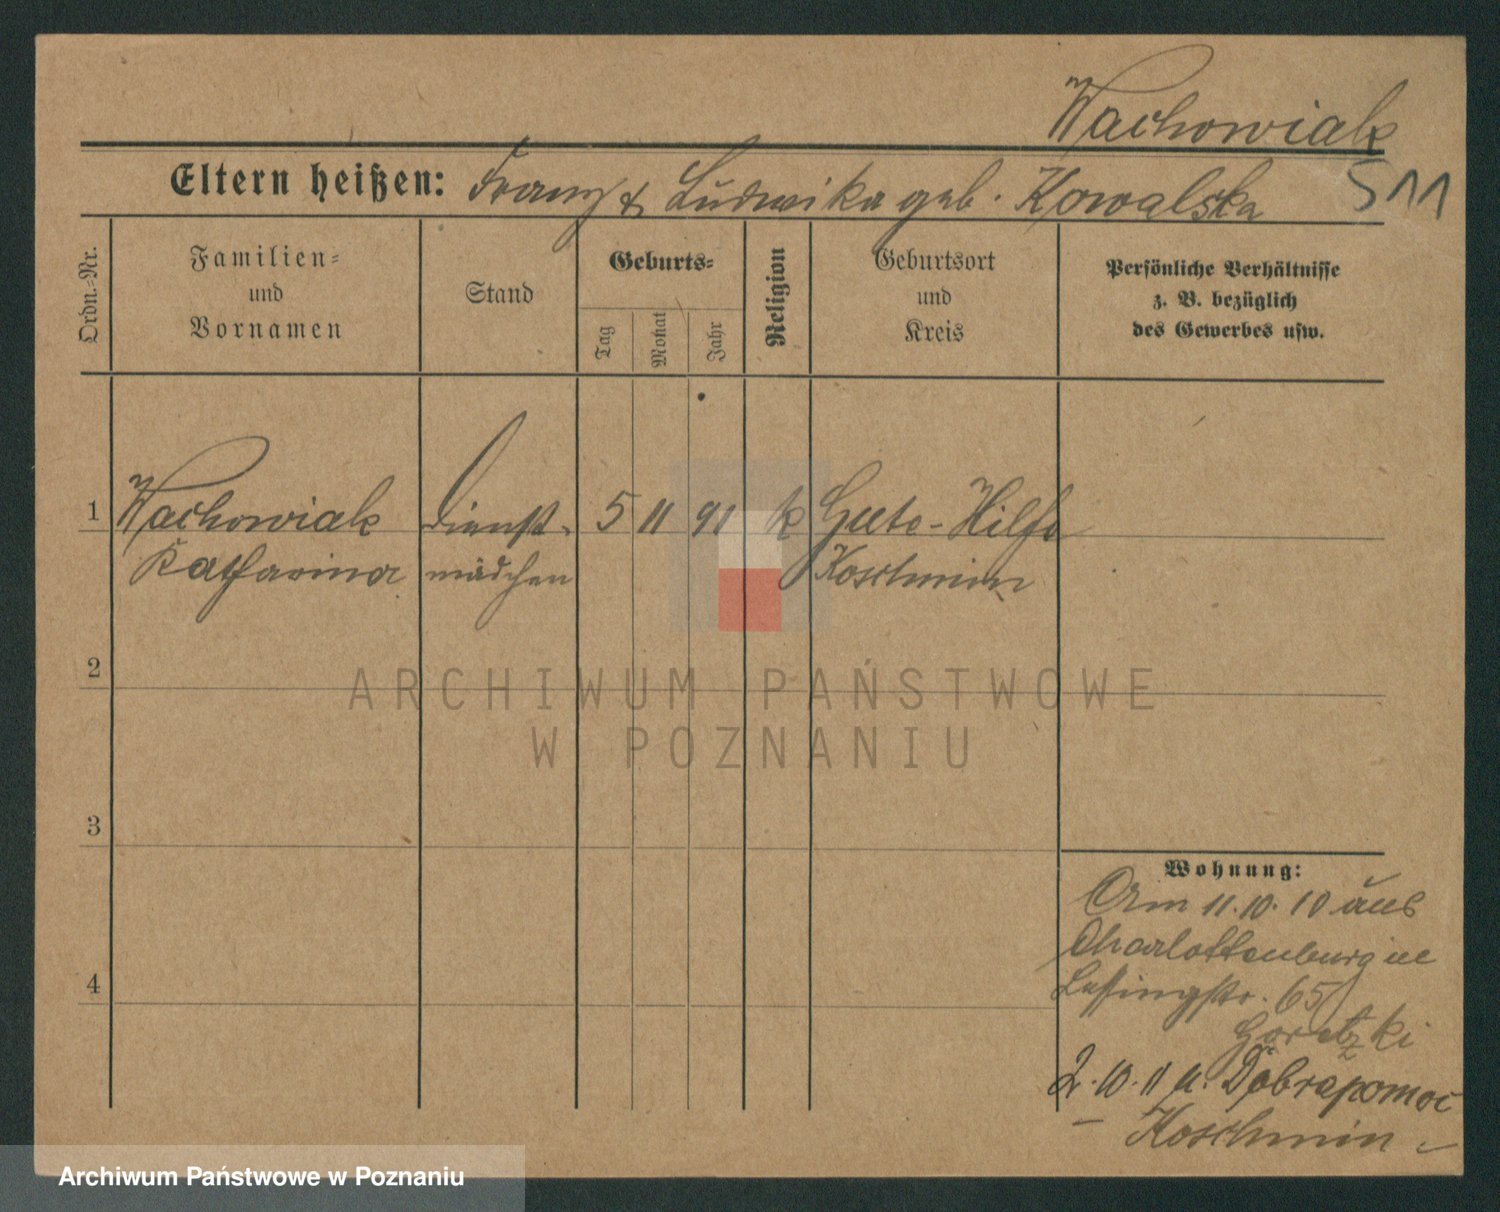 Wachowiak
Eltern heißen: Franz & Ludwika geb. Kowalska
511
Ordn.-Nr.
Familien-
und
Vornamen
Stand
Geburts-
Tag
Monat
Jahr
Religion
Geburtsort
und
Kreis
Persönliche Verhältnisse
z. B. bezüglich
des Gewerbes usw.
1 Wachowiak Dienst- 5 11 91 k Gute-Hilfe
Katharina mädchen Koschmin
2
3
4
Wohnung:
Am 11.10.10 aus
Charlottenburg in
Lessingstr. 65
Goretzki
2.10.11 n. Dobrapomoc
Koschmin
ARCHIWUM PAŃSTWOWE
W POZNANIU
Archiwum Państwowe w Poznaniu